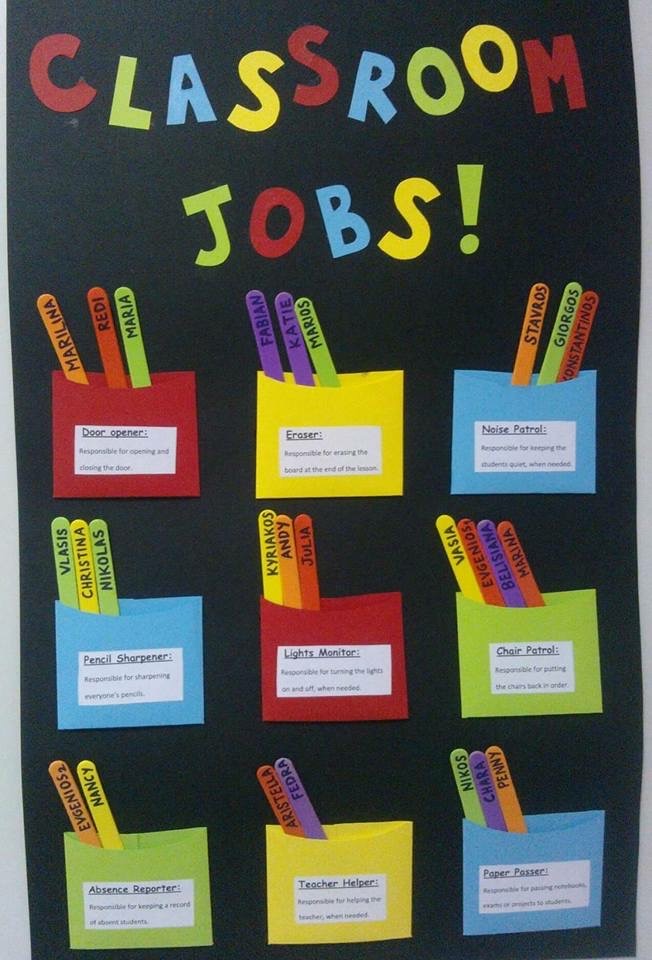 CLASSROOM
JOBS!
MARILINA
REDI
MARIA
FABIAN
KATIE
MARIOS
STAVROS
GIORGOS
KONSTANTINOS
Door opener:
Responsible for opening and
closing the door.
Eraser:
Responsible for erasing the
board at the end of the lesson.
Noise Patrol:
Responsible for keeping the
students quiet, when needed.
VLASIS
CHRISTINA
NIKOLAS
KYRIAKOS
ANDY
JULIA
VASIA
EVGENIOS1
BELISIANA
MARINA
Pencil Sharpener:
Responsible for sharpening
everyone's pencils.
Lights Monitor:
Responsible for turning the lights
on and off, when needed.
Chair Patrol:
Responsible for putting
the chairs back in order.
EVGENIOS2
NANCY
ARISTELLA
FEDRA
NIKOS
CHARA
PENNY
Absence Reporter:
Responsible for keeping a record
of absent students.
Teacher Helper:
Responsible for helping the
teacher, when needed.
Paper Passer:
Responsible for passing notebooks,
exams or projects to students.